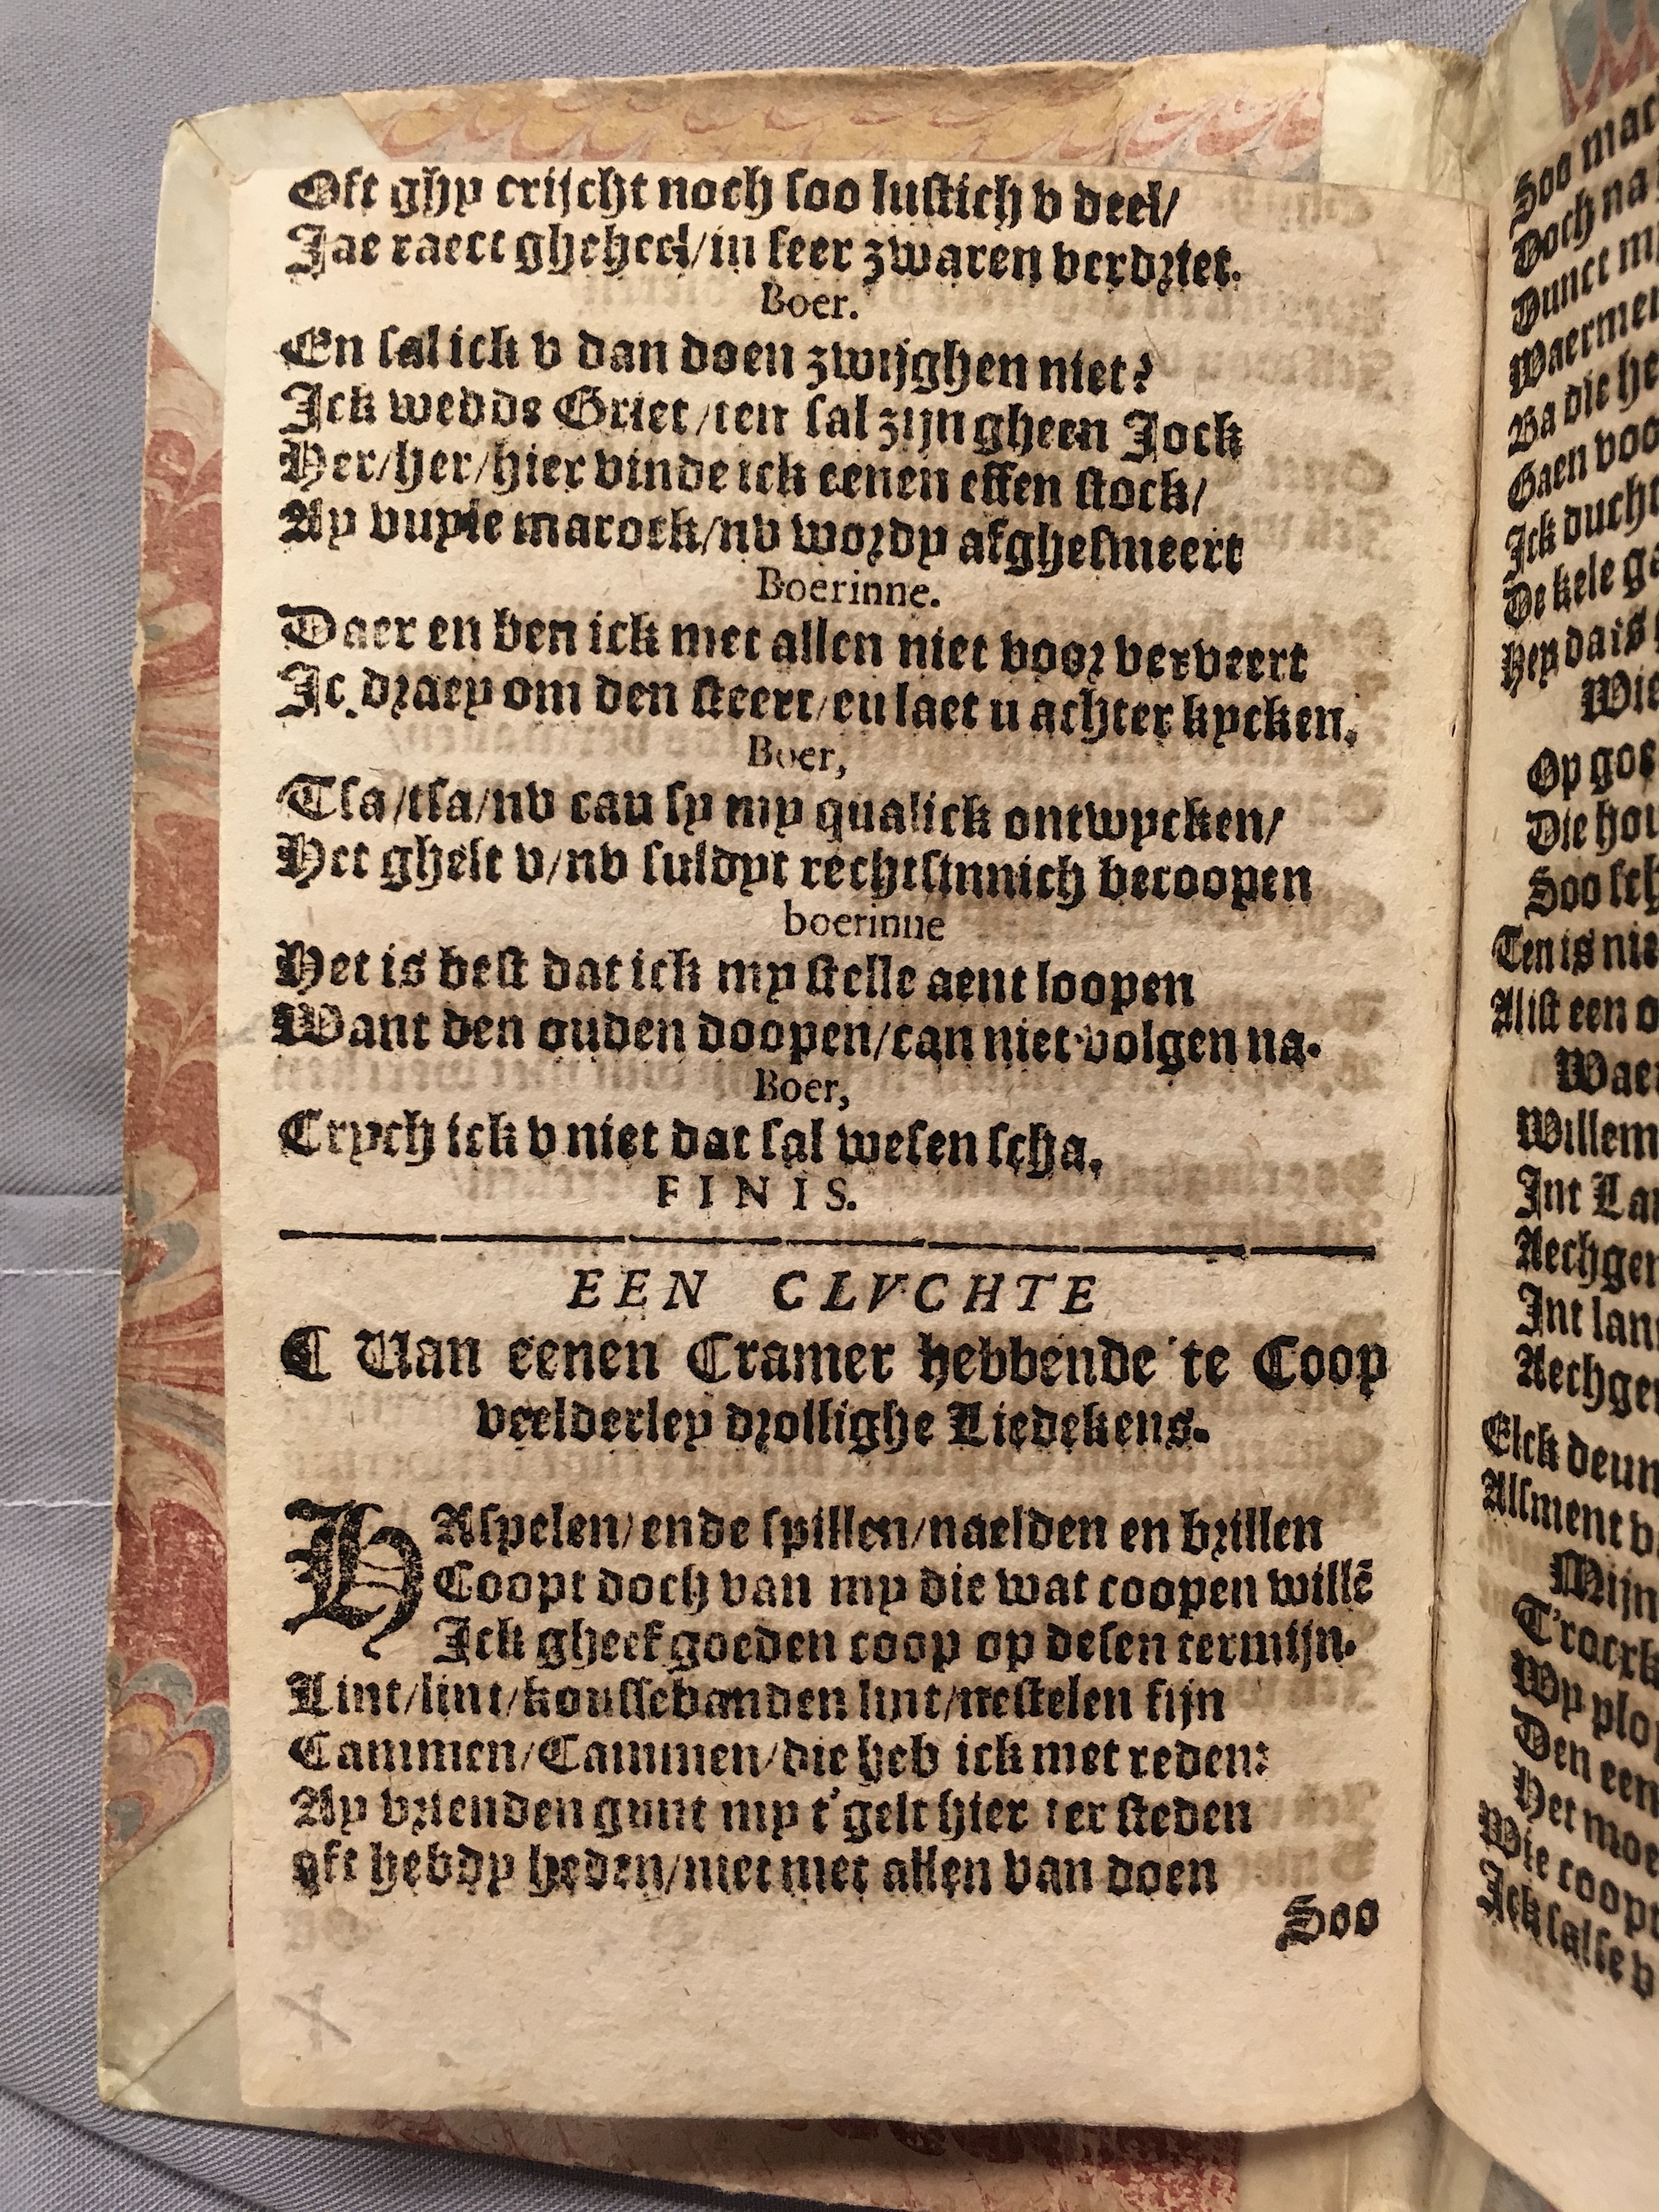 Oft ghy crijcht noch soo lustich v deel/
Jae raect gheheel/in seer zwaren verdriet.
Boer.
En sal ick v dan doen zwijghen niet?
Ick wedds Griet/ten sal zijn gheen Jock
Her/her/hier vinde ick eenen effen stock/
Ay vuyle marock/nv wordy afghesmeert
Boerinne.
Daer en ben ick met allen niet voor verveert
Ic draey om den steert/en laet u achter kycken.
Boer,
Tsa/tsa/nv can sy my qualick ontwycken/
Het ghelt v/nv suldyt rechtsinnich becoopen
boerinne
Het is best dat ick my stelle aent loopen
Want den ouden doopen/can niet volgen na.
Boer,
Crych ick v niet dat sal wesen scha.
FINIS.
EEN CLVCHTE
Van eenen Cramer hebbende te Coop
veelderley drollighe Liedekens.
HAspelen/ende spillen/naelden en brillen
Coopt doch van my die wat coopen willē
Ick gheef goeden coop op desen termijn.
Lint/lint/koussebanden lint/nestelen fijn
Cammen/Cammen/die heb ick met reden:
Ay vrienden gunt my t'gelt hier ter steden
oft hebdy heden/niet met allen van doen
Soo
Soo
Doch na
Dunct
Ba die
Gaen
Ick
De kele
Op
Ten is
Alist een
Willem
Int
Int
Elck
Alsment
Wy
Den een
Het
Wie
Ick salse